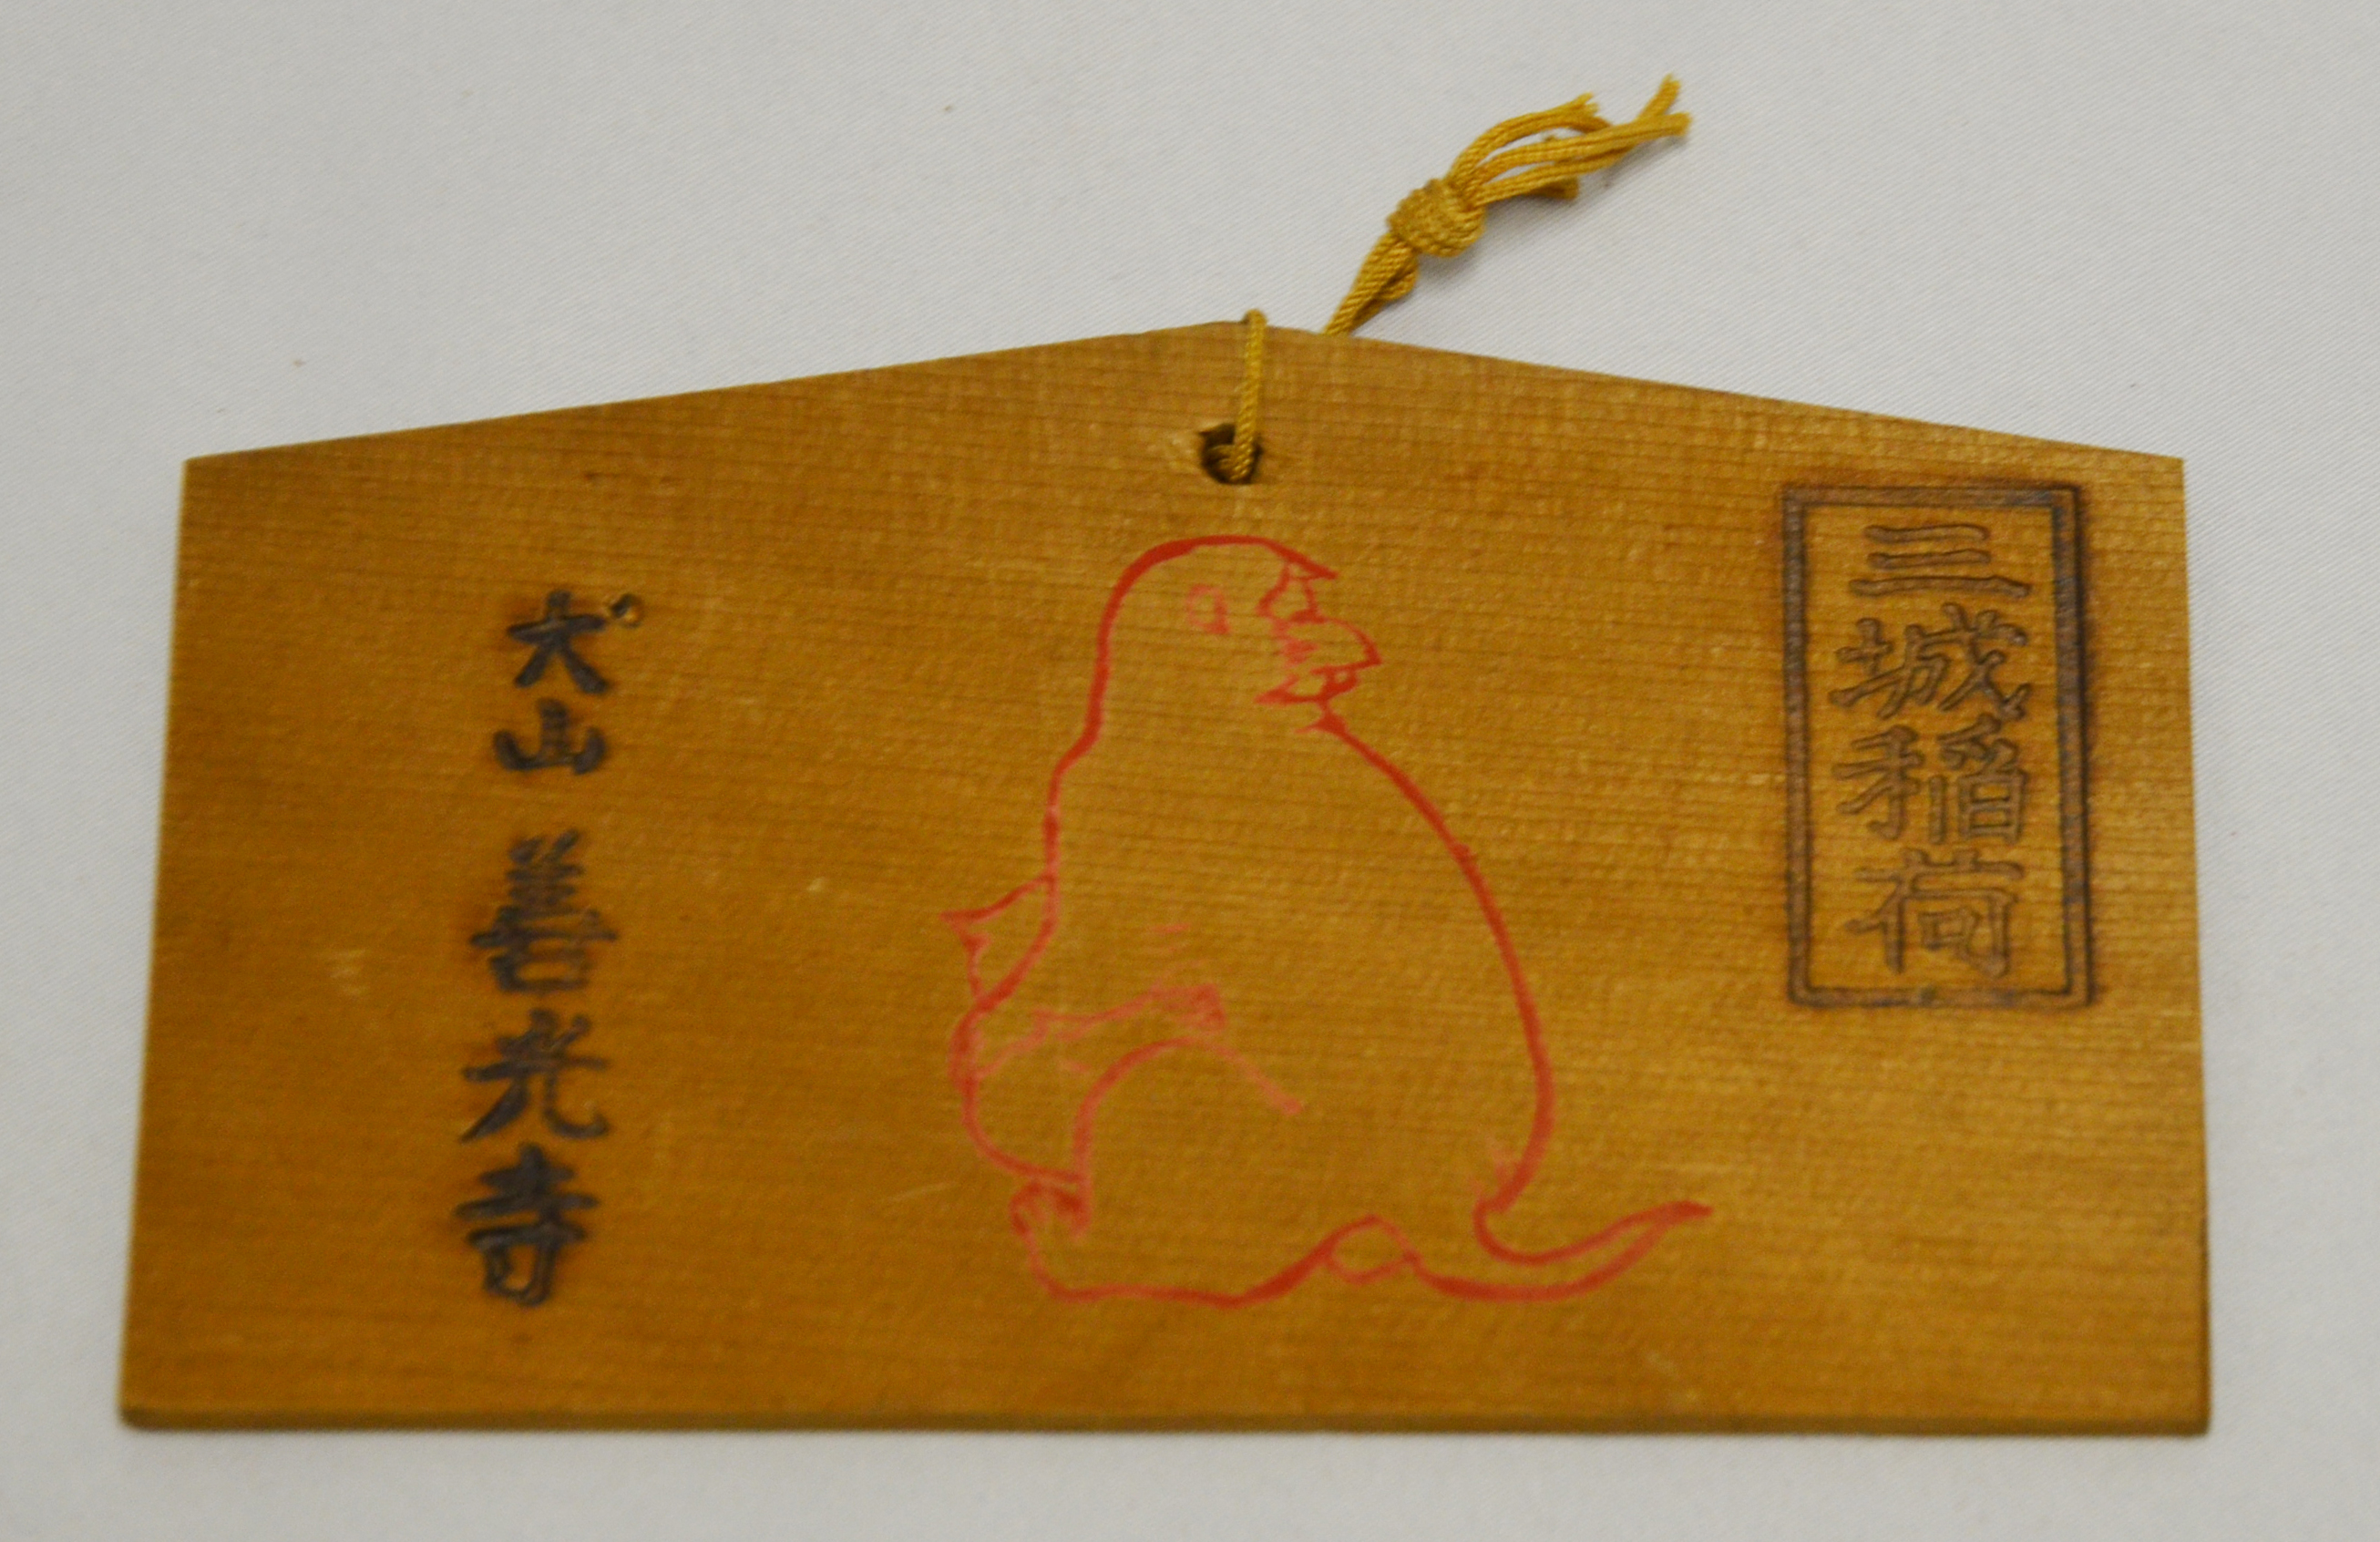 三城稲荷
犬山 善光寺